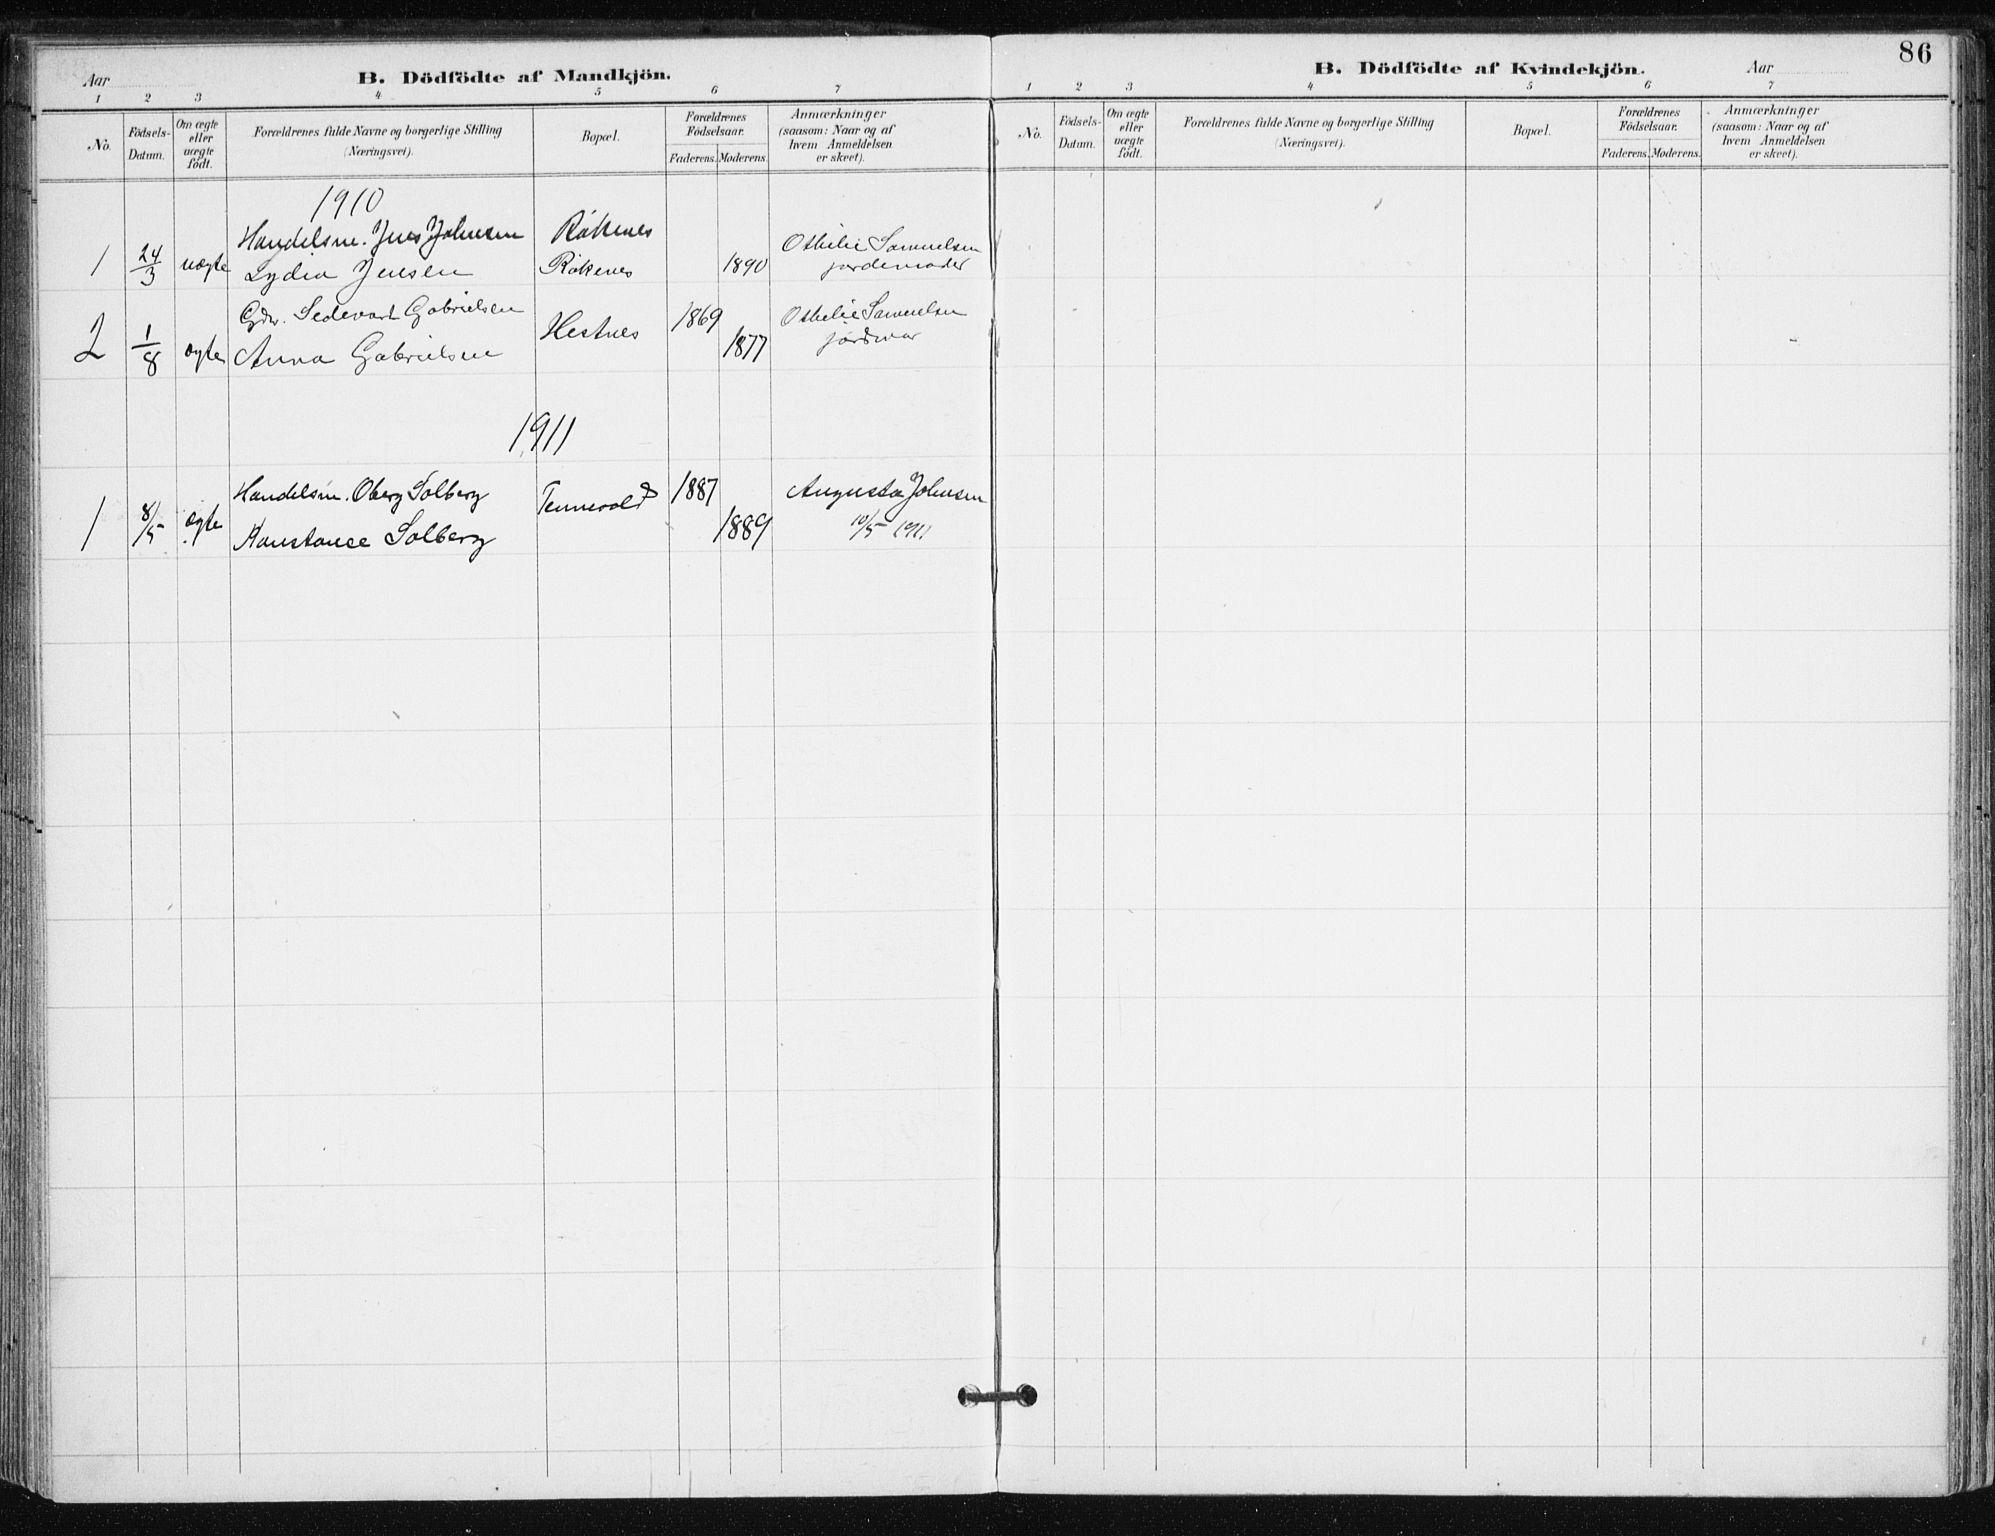 Aar
B. Dödfödte af Mandkjön.
1 2 3 4 5 6 7
No.
Födsels-
Datum.
Om ægte
eller
uægte
födt.
Forældrenes fulde Navne og borgerlige Stilling
(Næringsvei).
Bopæl.
Forældrenes
Födselsaar.
Faderens. Moderens.
Anmærkninger
(saasom: Naar og af
hvem Anmeldelsen
er skeet).
1910
Handelsm. Jens Johnsen Röknes
1 24/3 uægte Lydia Jensen Röknes 1890 Othelie Samuelsen
jordemoder
Gdbr. Gabrielsen 1869 Othelie Samuelsen
2 1/8 ægte Anna Gabrielsen Hestnes 1877 jordmor
1911
Handelsm. Oberg Solberg Tennevold 1887 Augusta Johnsen
1 8/5 ægte Konstance Solberg 1889 10/5 1911
86
B. Dödfödte af Kvindekjön.
Aar
1 2 3 4 5 6 7
No.
Födsels-
Datum.
Om ægte
eller
uægte
födt.
Forældrenes fulde Navne og borgerlige Stilling
(Næringsvei).
Bopæl.
Forældrenes
Födselsaar.
Faderens. Moderens.
Anmærkninger
(saasom: Naar og af
hvem Anmeldelsen
er skeet).